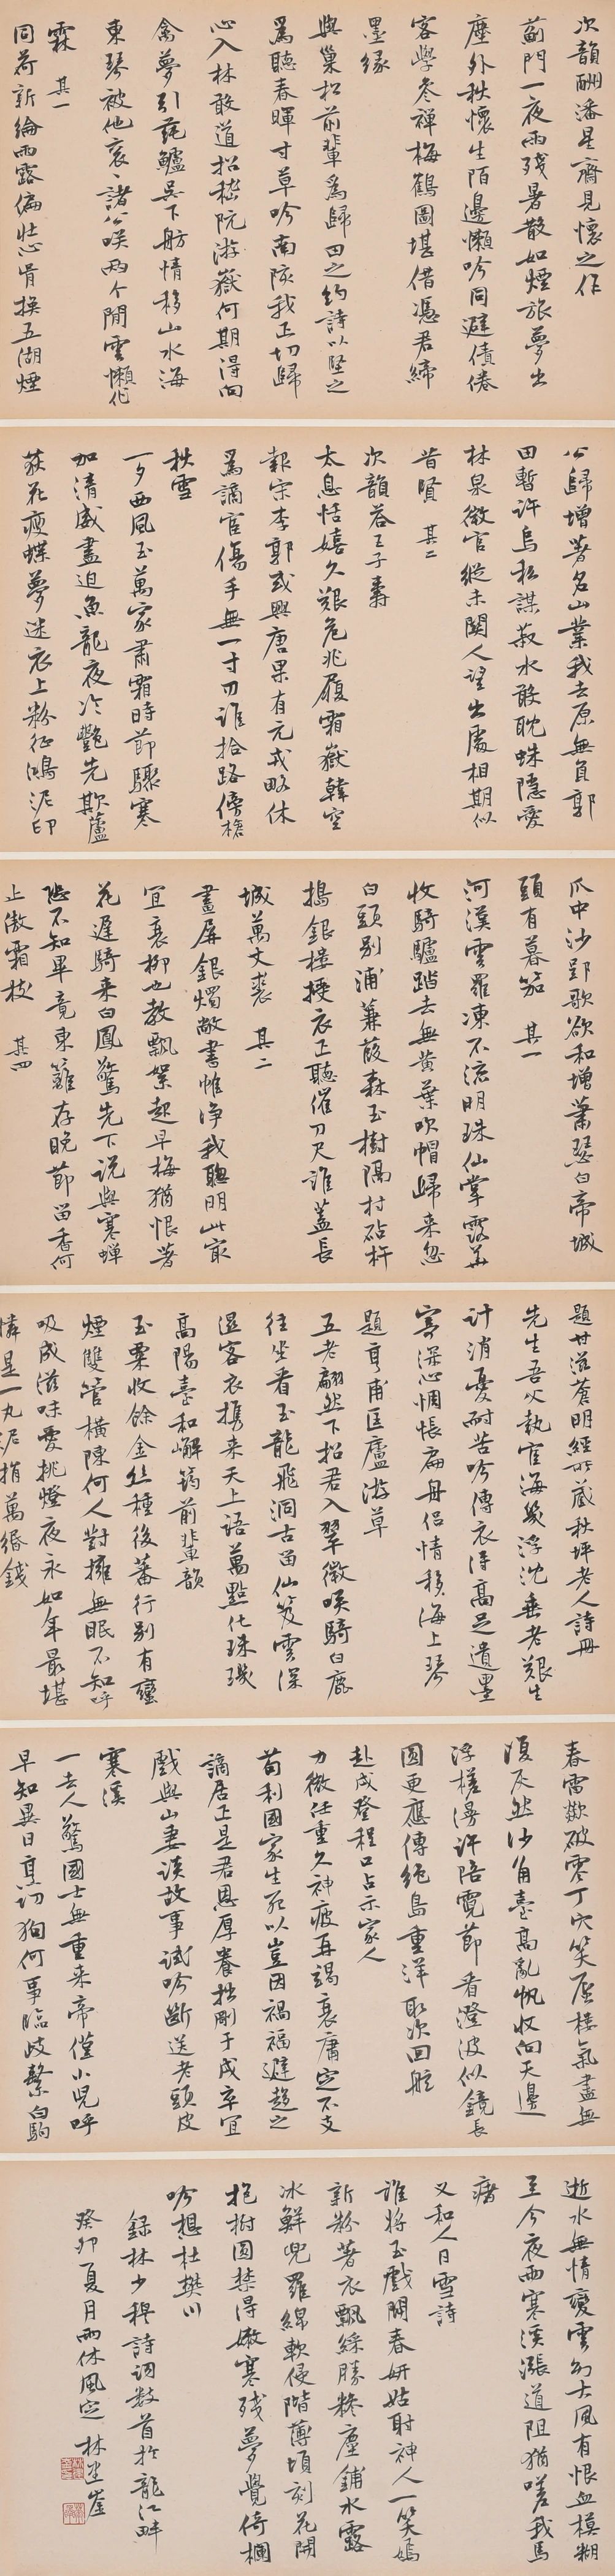 次韻酬潘星齋見懷之作
薊門一夜雨殘暑散如煙旅夢出
塵外秋懷生陌邊懶吟同避債倦
客學參禪梅鶴圖堪借憑君締
墨緣
與巢松前輩為歸田之約詩以堅之
為聽春暉寸草吟南陔我正切歸
心入林敢道招嵇阮游嶽何期得向
禽夢引蓴鱸吳下舫情移山水海
東琴被他袞〻諸公咲兩个閒雲懶作
霖 其一
同荷新綸雨露偏壯心肯換五湖煙
公歸增著名山業我去原無負郭
田暫許烏私謀菽水敢耽蛛隱愛
林泉微官縱未關人望出處相期似
昔賢 其二
次韻答王子壽
太息恬嬉久艱危兆履霜嶽韓空
報宋李郭或興唐果有元戎略休
為謫官傷手無一寸刃誰拾路傍槍
秋雪
一夕西風玉萬家肅霜時節驟寒
加清威盡迫魚龍夜冷艷先欺蘆
荻花瘦蝶夢迷衣上粉征鴻泥印
爪中沙郢歌欲和增蕭瑟白帝城
頭有暮笳 其一
河漢雲羅凍不流明珠仙掌露華
收騎驢踏去無黃葉吹帽歸來忽
白頭別浦蒹葭森玉樹隔村砧杵
搗銀樓授衣正聽催刀尺誰蓋長
城萬丈裘 其二
畫屏銀燭敞書帷淨我聰明此最
宜衰柳也教飄絮起早梅猶恨著
花遲騎來白鳳驚先下說與寒蟬
恐不知畢竟東籬存晚節留香何
止傲霜枝 其四
題甘滋蒼明經所藏秋坪老人詩冊
先生吾父執宦海幾浮沈垂老艱生
計消憂耐苦吟傳衣得高足遺墨
寄深心惆悵扁舟侶情移海上琴
題亨甫匡廬游草
五老翩然下招君入翠微喚騎白鹿
往坐看玉龍飛洞古留仙笈雲深
濕客衣攜來天上語萬點化珠璣
高陽臺和嶰筠前輩韻
玉粟收餘金絲種後蕃行別有蠻
煙雙管橫陳何人對擁無眠不知呼
吸成滋味愛挑燈夜永如年最堪
憐是一丸泥捐萬緡錢
春雷歘破零丁穴笑蜃樓氣盡無
復灰然沙角臺高亂帆收向天邊
浮槎漫許陪霓節看澄波似鏡長
圓更應傳絕島重洋取次回舷
赴戍登程口占示家人
力微任重久神疲再竭衰庸定不支
苟利國家生死以豈因禍福避趨之
謫居正是君恩厚養拙剛于戍卒宜
戲與山妻談故事試吟斷送老頭皮
寒溪
一去人驚國士無重來帝僅小兒呼
早知異日烹功狗何事臨歧縶白駒
逝水無情變雲幻大風有恨血模糊
至今夜雨寒溪漲道阻猶嗟我馬
瘏
又和人日雪詩
誰將玉戲鬭春妍姑射神人一笑嫣
新粉著衣飄綵勝糝塵鋪水露
冰鮮兜羅綿軟侵階薄頃刻花開
抱樹圓禁得嫩寒殘夢覺倚欄
吟想杜樊川
錄林少穆詩詞數首於龍江畔
癸卯夏月雨休風定 林坐崖